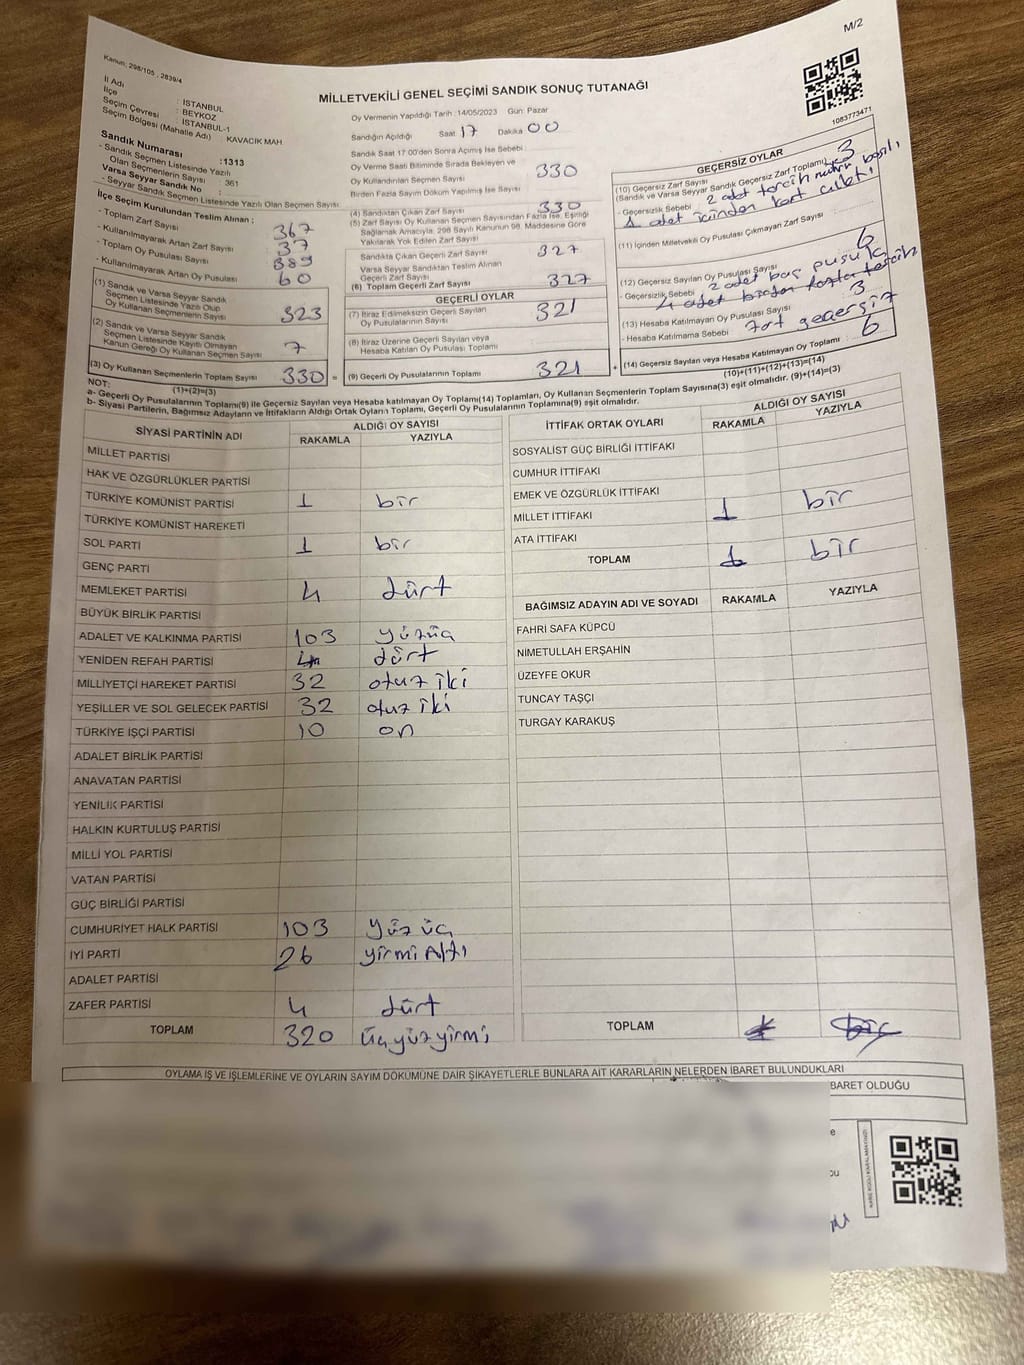 M/2
Kanun: 298/105 , 2839/4
MİLLETVEKİLİ GENEL SEÇİMİ SANDIK SONUÇ TUTANAĞI
1083773471
İl Adı : İSTANBUL
İlçe : BEYKOZ
Seçim Çevresi : İSTANBUL-1
Seçim Bölgesi (Mahalle Adı) : KAVACIK MAH
Sandık Numarası :1313
- Sandık Seçmen Listesinde Yazılı
Olan Seçmenlerin Sayısı : 361
Varsa Seyyar Sandık No :
- Seyyar Sandık Seçmen Listesinde Yazılı Olan Seçmen Sayısı :
İlçe Seçim Kurulundan Teslim Alınan ;
- Toplam Zarf Sayısı : 367
- Kullanılmayarak Artan Zarf Sayısı : 37
- Toplam Oy Pusulası Sayısı : 389
- Kullanılmayarak Artan Oy Pusulası : 60
(1) Sandık ve Varsa Seyyar Sandık
Seçmen Listesinde Yazılı Olup
Oy Kullanan Seçmenlerin Sayısı 323
(2) Sandık ve Varsa Seyyar Sandık
Seçmen Listesinde Kayıtlı Olmayan
Kanun Gereği Oy Kullanan Seçmen Sayısı 7
(3) Oy Kullanan Seçmenlerin Toplam Sayısı 330 =
(1)+(2)=(3)
Oy Vermenin Yapıldığı Tarih :14/05/2023 Gün: Pazar
Sandığın Açıldığı Saat 17 Dakika 00
Sandık Saat 17:00'den Sonra Açımış İse Sebebi :
Oy Verme Saati Bitiminde Sırada Bekleyen ve
Oy Kullandırılan Seçmen Sayısı 330
Birden Fazla Sayım Döküm Yapılmış İse Sayısı
(4) Sandıktan Çıkan Zarf Sayısı 330
(5) Zarf Sayısı Oy Kullanan Seçmen Sayısından Fazla İse, Eşitliği
Sağlamak Amacıyla, 298 Sayılı Kanunun 98. Maddesine Göre
Yakılarak Yok Edilen Zarf Sayısı
Sandıkta Çıkan Geçerli Zarf Sayısı 327
Varsa Seyyar Sandıktan Teslim Alınan
Geçerli Zarf Sayısı
(6) Toplam Geçerli Zarf Sayısı 327
GEÇERLİ OYLAR
(7) İtiraz Edilmeksizin Geçerli Sayılan
Oy Pusulalarının Sayısı 321
(8) İtiraz Üzerine Geçerli Sayılan veya
Hesaba Katılan Oy Pusulası Toplamı
(9) Geçerli Oy Pusulalarının Toplamı 321 +
GEÇERSİZ OYLAR
(10) Geçersiz Zarf Sayısı
(Sandık ve Varsa Seyyar Sandık Geçersiz Zarf Toplamı) : 3
- Geçersizlik Sebebi : 2 adet tercih mührü basılı
1 adet içinden kart çıktı
(11) İçinden Milletvekili Oy Pusulası Çıkmayan Zarf Sayısı :
(12) Geçersiz Sayılan Oy Pusulası Sayısı : 6
- Geçersizlik Sebebi 2 adet boş pusula
4 adet birden fazla tercih
(13) Hesaba Katılmayan Oy Pusulası Sayısı : 3
- Hesaba Katılmama Sebebi : zarf geçersiz
(14) Geçersiz Sayılan veya Hesaba Katılmayan Oy Toplamı : 6
(10)+(11)+(12)+(13)=(14)
NOT:
a- Geçerli Oy Pusulalarının Toplamı(9) ile Geçersiz Sayılan veya Hesaba katılmayan Oy Toplamı(14) Toplamları, Oy Kullanan Seçmenlerin Toplam Sayısına(3) eşit olmalıdır. (9)+(14)=(3)
b- Siyasi Partilerin, Bağımsız Adayların ve İttifakların Aldığı Ortak Oyların Toplamı, Geçerli Oy Pusulalarının Toplamına(9) eşit olmalıdır.
SİYASİ PARTİNİN ADI
ALDIĞI OY SAYISI
RAKAMLA YAZIYLA
MİLLET PARTİSİ
HAK VE ÖZGÜRLÜKLER PARTİSİ
TÜRKİYE KOMÜNİST PARTİSİ 1 bir
TÜRKİYE KOMÜNİST HAREKETİ
SOL PARTİ 1 bir
GENÇ PARTİ
MEMLEKET PARTİSİ 4 dört
BÜYÜK BİRLİK PARTİSİ
ADALET VE KALKINMA PARTİSİ 103 yüzüç
YENİDEN REFAH PARTİSİ 4 dört
MİLLİYETÇİ HAREKET PARTİSİ 32 otuz iki
YEŞİLLER VE SOL GELECEK PARTİSİ 32 otuz iki
TÜRKİYE İŞÇİ PARTİSİ 10 on
ADALET BİRLİK PARTİSİ
ANAVATAN PARTİSİ
YENİLİK PARTİSİ
HALKIN KURTULUŞ PARTİSİ
MİLLİ YOL PARTİSİ
VATAN PARTİSİ
GÜÇ BİRLİĞİ PARTİSİ
CUMHURİYET HALK PARTİSİ 103 yüz üç
İYİ PARTİ 26 yirmi Altı
ADALET PARTİSİ
ZAFER PARTİSİ 4 dört
TOPLAM 320 üçyüzyirmi
İTTİFAK ORTAK OYLARI
ALDIĞI OY SAYISI
RAKAMLA YAZIYLA
SOSYALİST GÜÇ BİRLİĞİ İTTİFAKI
CUMHUR İTTİFAKI
EMEK VE ÖZGÜRLÜK İTTİFAKI
MİLLET İTTİFAKI 1 bir
ATA İTTİFAKI
TOPLAM 1 bir
BAĞIMSIZ ADAYIN ADI VE SOYADI RAKAMLA YAZIYLA
FAHRİ SAFA KÜPCÜ
NİMETULLAH ERŞAHİN
ÜZEYFE OKUR
TUNCAY TAŞÇI
TURGAY KARAKUŞ
TOPLAM bir
OYLAMA İŞ VE İŞLEMLERİNE VE OYLARIN SAYIM DÖKÜMÜNE DAİR ŞİKAYETLERLE BUNLARA AİT KARARLARIN NELERDEN İBARET BULUNDUKLARI
BARET OLDUĞU